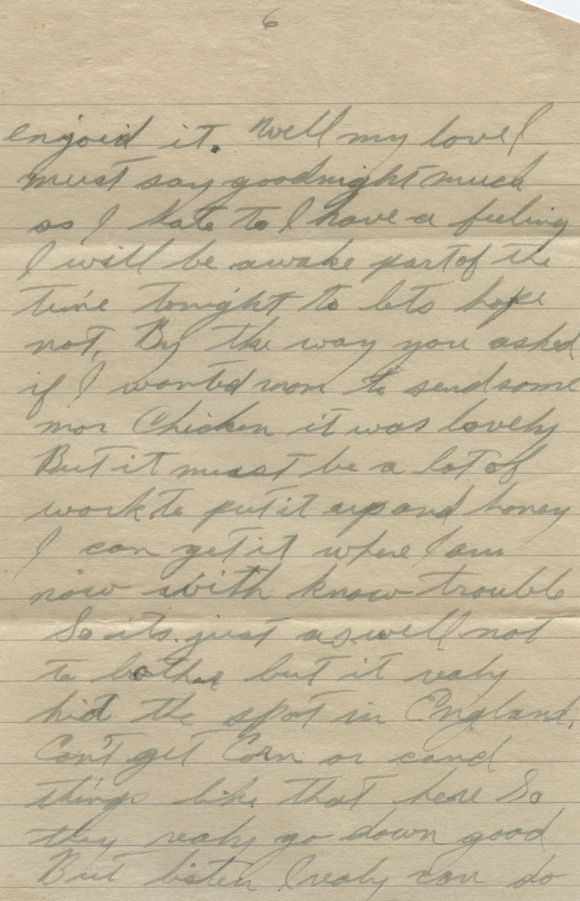 6
enjoid it. Well my love I
must say goodnight much
as I hate to I have a feeling
I will be awake part of the
time tonight to lets hope
not, By the way you asked
if I wanted mom to send some
mor Chicken it was lovely
But it must be a lot of
work to put it up and honey
I can get it where I am
now with know trouble
So its just as well not
to bother but it realy
hid the spot in England.
Can't get Corn or cand
things like that here So
they realy go down good
But listen I realy can do